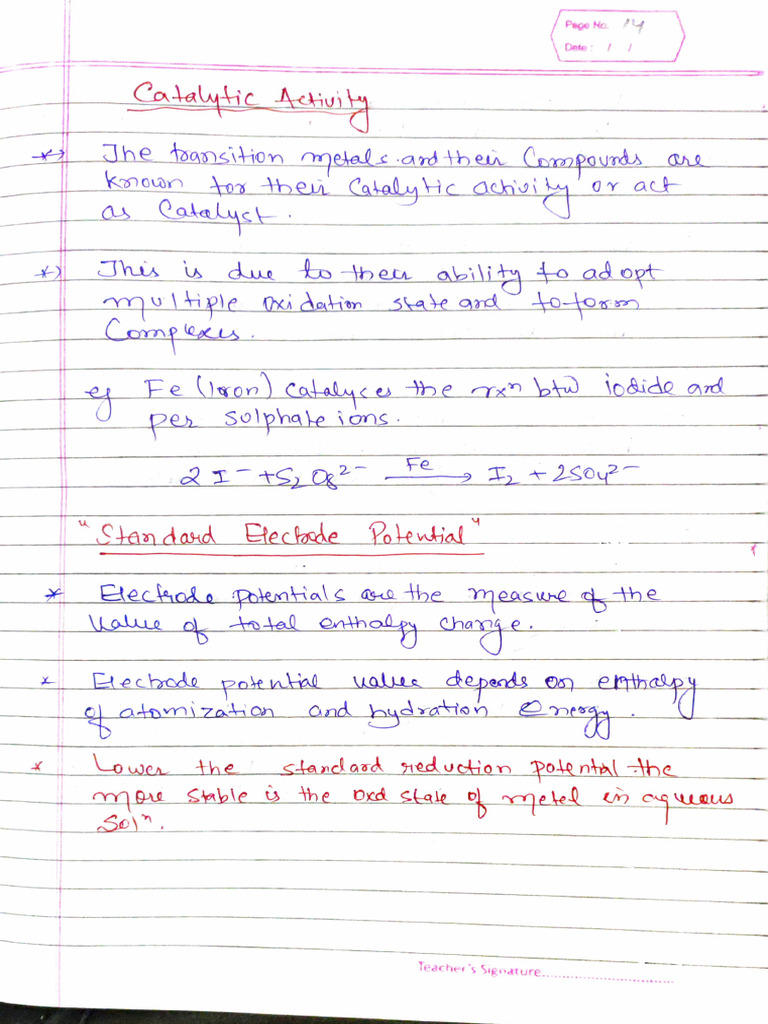 Page No. 14
Date : / /
Catalytic Activity
*→ The transition metals and their Compounds are
known for their Catalytic activity or act
as Catalyst.
*) This is due to their ability to adopt
multiple oxidation state and to form
Complexes.
eg Fe (Iron) Catalyses the rxⁿ btw iodide and
per sulphate ions.
2I⁻ + S₂O₈²⁻ —Fe→ I₂ + 2SO₄²⁻
"Standard Electrode Potential"
* Electrode potentials are the measure of the
value of total enthalpy change.
* Electrode potential value depends on enthalpy
of atomization and hydration energy.
* Lower the standard reduction potential the
more stable is the oxd state of metel in aqueous
Solⁿ.
Teacher's Signature